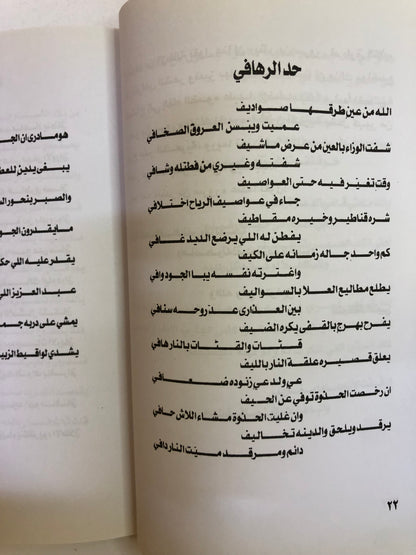 حد الرهافي
الله من عين طرقها صواديف
عميت ويبسن العروق الصخافي
شفت الوزاء بالعين من عرض ماشيف
شفته وغيري من فطتله وشافي
وقت تغير فيه حتى العواصيف
جاء في عواصيف الرياح اختلافي
شره قناطير وخيره مقاطيف
يفطن له اللي يرضع الديد غافي
كم واحد جاله زمانه على الكيف
واغترته نفسه يبا الجود وافي
يطلع مطاليع العلا بالسواليف
بين العذارى عد زوحه سنافي
يفرح بهرج بالقفى يكره الضيف
قثات والقثات بالنار هافي
يعلق قصيره علقة النار بالليف
عي ولد عي زنوده ضعافي
ان رخصت الحذوة توفي عن الحيف
وان غليت الحذوة مشاء اللاش حافي
يرقد ويلحق والدينه تخاليف
دايم ومرقد ميت النار دافي
٢٢
هو مادرى ان الجـ
يبغى يدين للعطـ
والصبر بنحور الـ
ما يقدرون الجو
يقدر عليه اللي حكـ
عبد العزيز اللي
يمشي على دربه جمـ
يشدي لواقيط الزبيـ